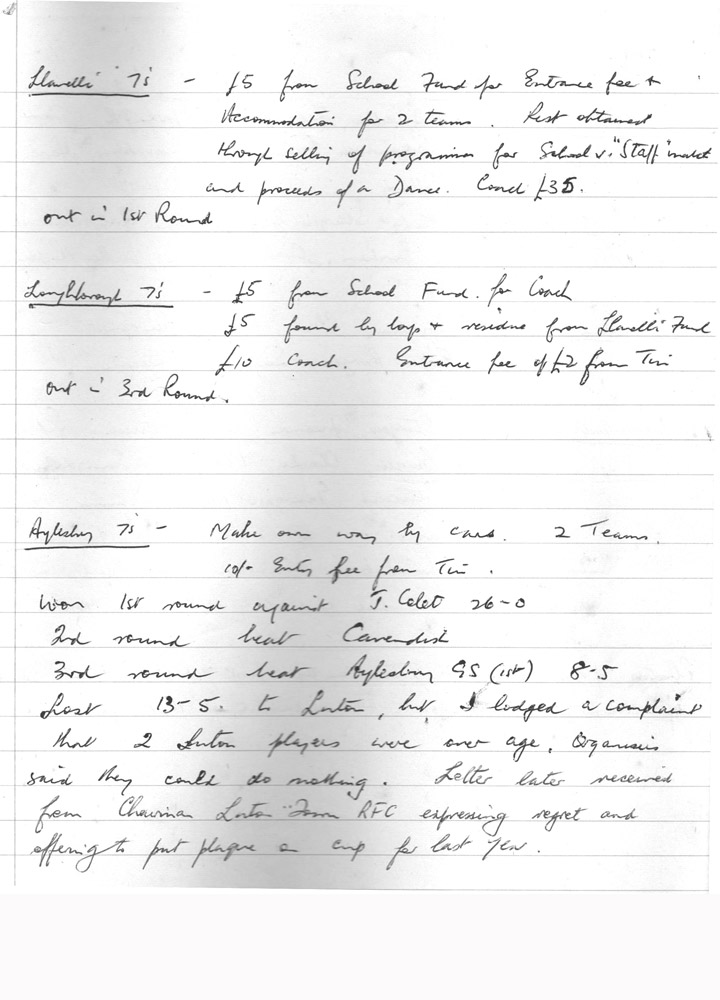 Llanelli 7's - £5 from School Fund for Entrance fee +
Accommodation for 2 teams. Rest obtained
through selling of programmes for School v. "Staff" match
and proceeds of a Dance. Coach £35.
out in 1st Round
Loughborough 7's - £5 from School Fund. for Coach
£5 found by boys + residue from Llanelli Fund
£10 Coach. Entrance fee of £2 from Tin
out in 3rd Round.
Aylesbury 7's - Make own way by cars. 2 Teams.
10/- Entry fee from Tin.
Won 1st round against J. Colet 26-0
2nd round beat Cavendish
3rd round beat Aylesbury GS (1st) 8-5
Lost 13-5. to Luton, but I lodged a complaint
that 2 Luton players were over age. Organisers
said they could do nothing. Letter later received
from Chairman Luton Town RFC expressing regret and
offering to put plaque on cup for last year.